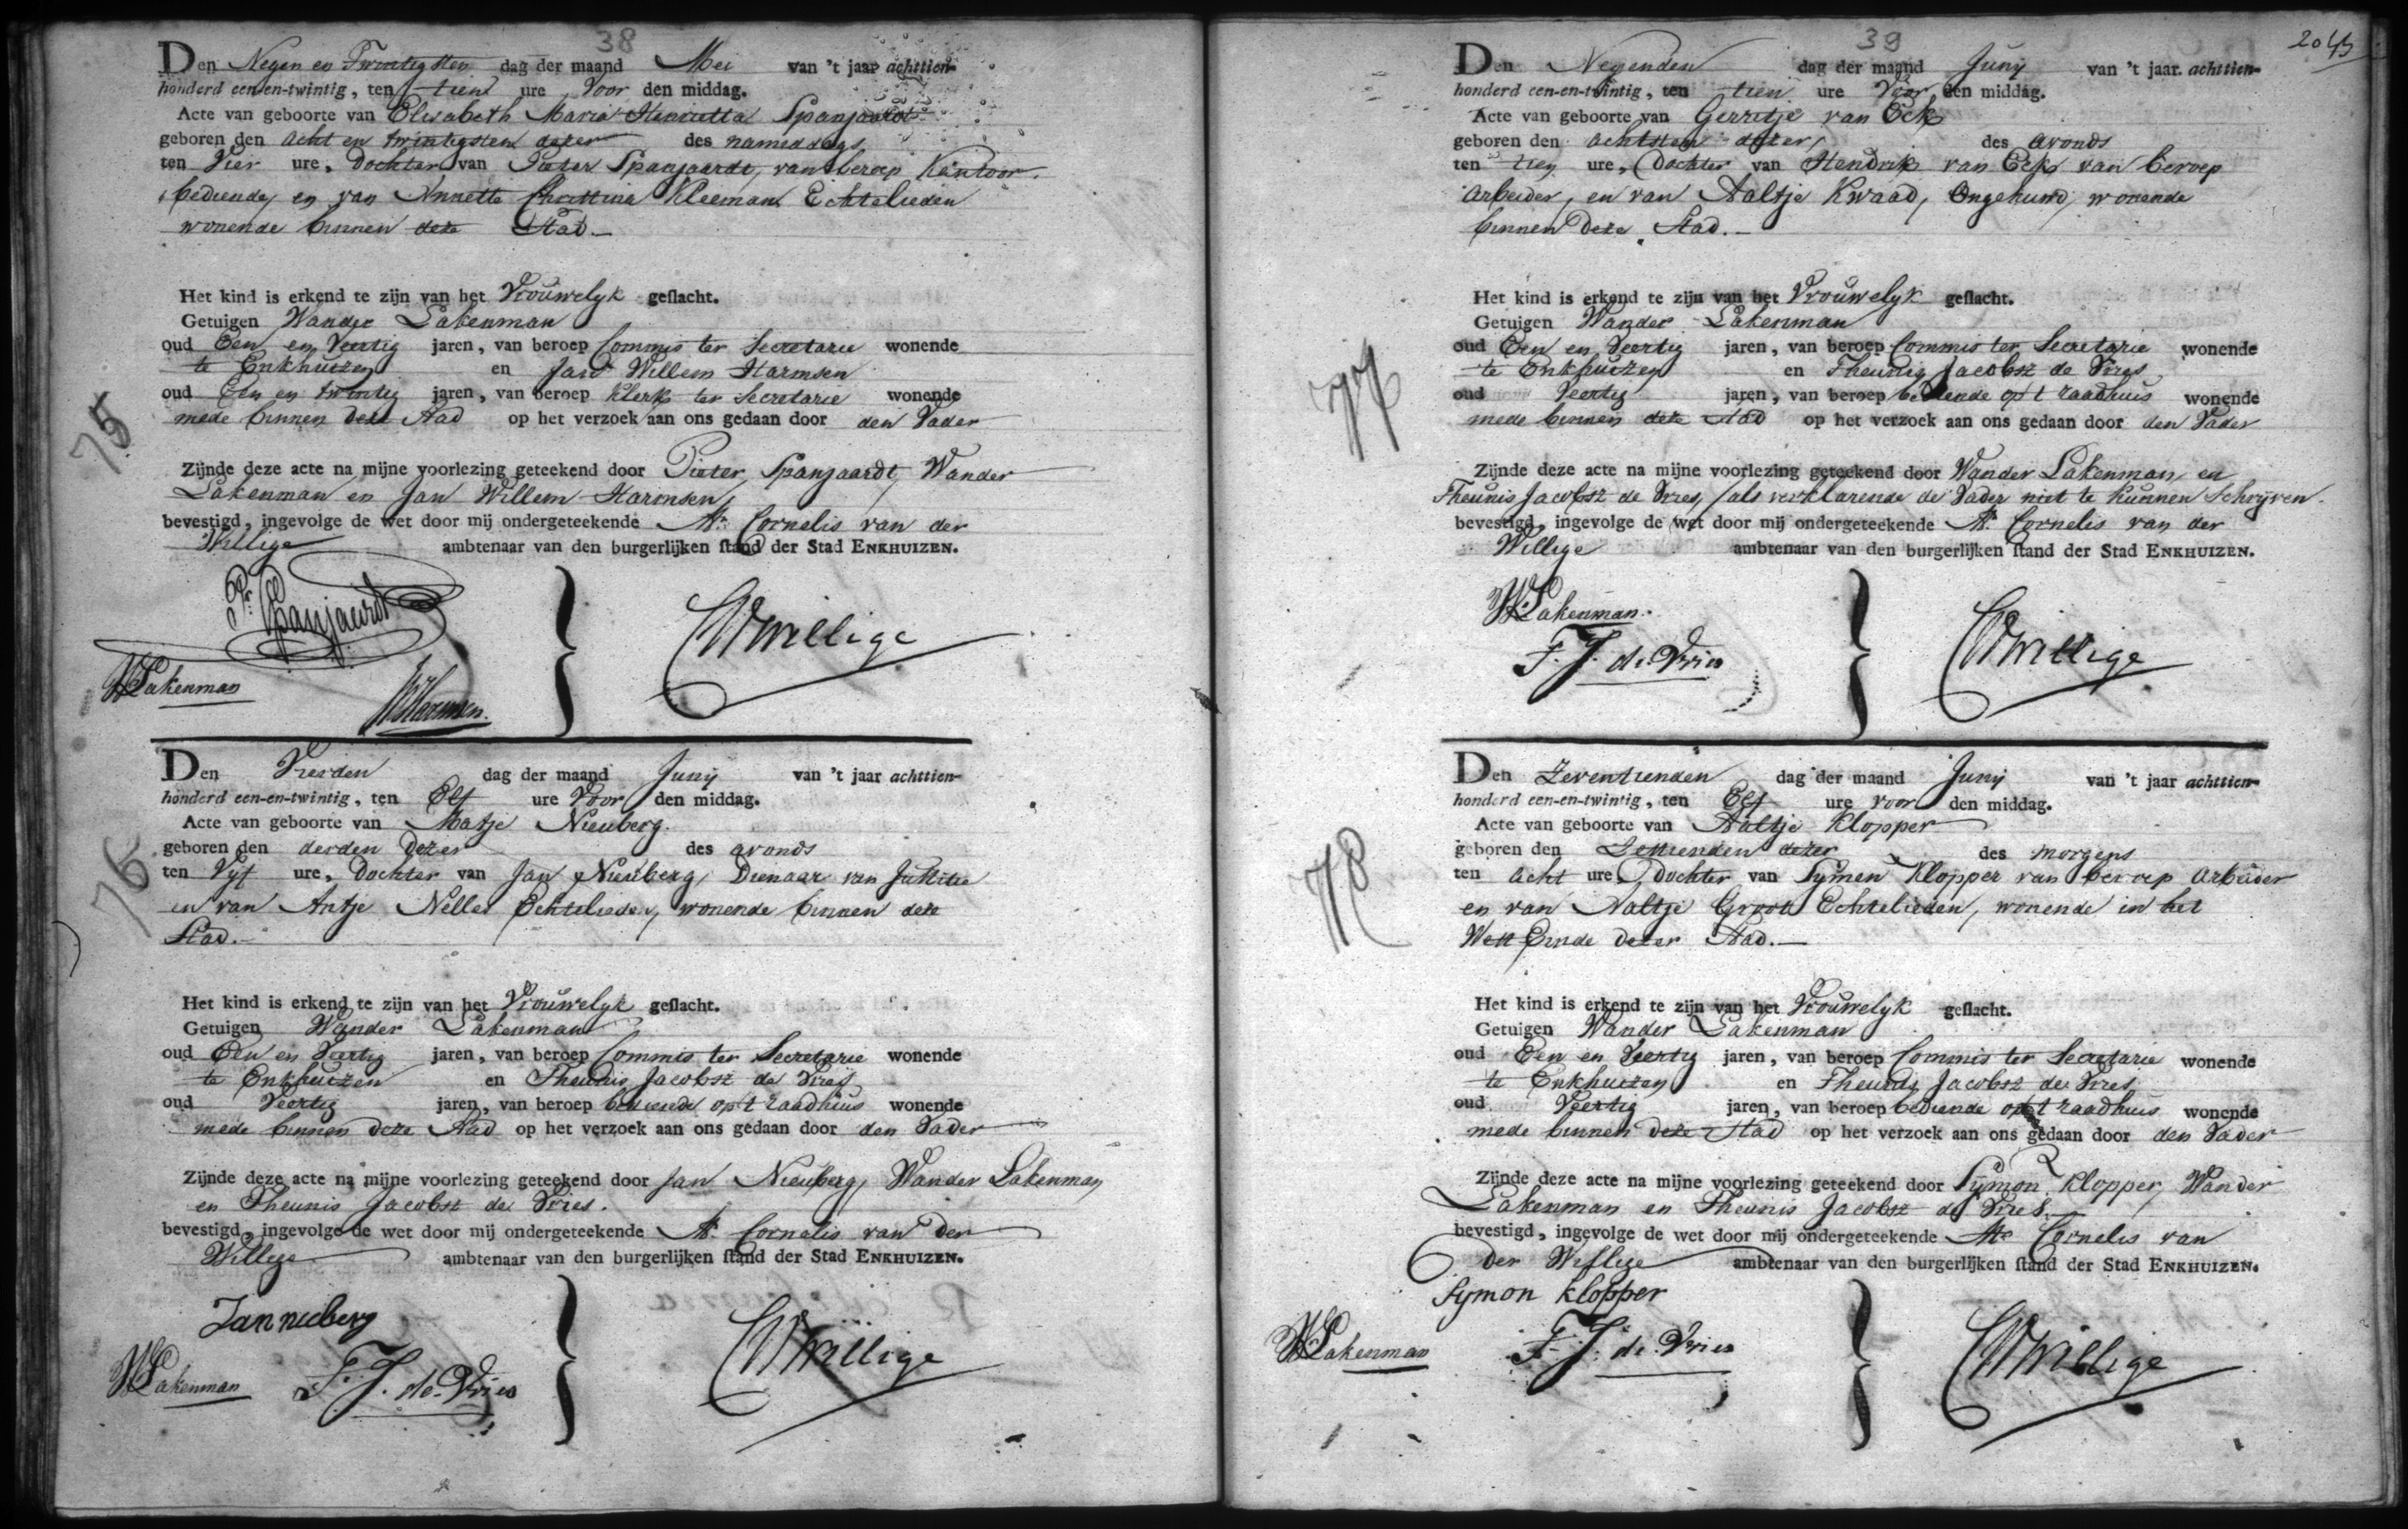 38
Den Negen en Twintigsten dag der maand Mei van 't jaar achttien-
honderd een-en-twintig, ten tien ure Voor den middag.
Acte van geboorte van Elisabeth Maria Henrietta Spanjaardt
geboren den acht en twintigsten dezer des namiddags
ten Vier ure, Dochter van Pieter Spanjaardt, van beroep Kantoor
bediende, en van Annette Christina Kleeman Echtelieden
wonende binnen deze Stad.
Het kind is erkend te zijn van het Vrouwelyk geslacht.
Getuigen Wander Lakenman
oud Een en Veertig jaren, van beroep Commis ter Secretarie wonende
te Enkhuizen en Jan Willem Harmsen
oud Een en twintig jaren, van beroep Klerk ter Secretarie wonende
mede binnen deze Stad op het verzoek aan ons gedaan door den Vader
75
Zijnde deze acte na mijne voorlezing geteekend door Pieter Spanjaardt, Wander
Lakenman en Jan Willem Harmsen
bevestigd, ingevolge de wet door mij ondergeteekende Mr. Cornelis van der
Willige ambtenaar van den burgerlijken stand der Stad ENKHUIZEN.
Pr. Spanjaardt
CVWillige
WLakenman
JWHarmsen.
Den Vierden dag der maand Junij van 't jaar achttien-
honderd een-en-twintig, ten Elf ure Voor den middag.
Acte van geboorte van Maatje Nieuberg.
geboren den derden dezer des avonds
ten Vyf ure, Dochter van Jan Nieuberg, Dienaar van Justitie
en van Antje Nelles Echtelieden, wonende binnen deze
Stad.
76
Het kind is erkend te zijn van het Vrouwelyk geslacht.
Getuigen Wander Lakenman
oud Een en Veertig jaren, van beroep Commis ter Secretarie wonende
te Enkhuizen en Theunis Jacobsz de Vries
oud Veertig jaren, van beroep bediende op 't raadhuis wonende
mede binnen deze Stad op het verzoek aan ons gedaan door den Vader
Zijnde deze acte na mijne voorlezing geteekend door Jan Nieuberg, Wander Lakenman
en Theunis Jacobsz de Vries.
bevestigd, ingevolge de wet door mij ondergeteekende Mr. Cornelis van der
Willige ambtenaar van den burgerlijken stand der Stad ENKHUIZEN.
Jan nieberg
CVWillige
WLakenman T. J. de Vries
39
Den Negenden dag der maand Junij van 't jaar achttien-
honderd een-en-twintig, ten tien ure Voor den middag.
Acte van geboorte van Gerritje van Eck
geboren den achtsten dezer, des avonds
ten tien ure, Dochter van Hendrik van Eck van beroep
arbeider, en van Aaltje Kwaad, Ongehuwd, wonende
binnen deze Stad.
Het kind is erkend te zijn van het Vrouwelyk geslacht.
Getuigen Wander Lakenman
oud Een en Veertig jaren, van beroep Commis ter Secretarie wonende
te Enkhuizen en Theunis Jacobsz de Vries
oud Veertig jaren, van beroep bediende op 't raadhuis wonende
mede binnen deze Stad op het verzoek aan ons gedaan door den Vader
77
Zijnde deze acte na mijne voorlezing geteekend door Wander Lakenman, en
Theunis Jacobsz de Vries, als verklarende de Vader niet te kunnen Schryven.
bevestigd, ingevolge de wet door mij ondergeteekende Mr. Cornelis van der
Willige ambtenaar van den burgerlijken stand der Stad ENKHUIZEN.
WLakenman.
T. J. de Vries
CVWillige
Den Zeventienden dag der maand Junij van 't jaar achttien-
honderd een-en-twintig, ten Elf ure voor den middag.
Acte van geboorte van Aaltje Klopper
geboren den Zestienden dezer des morgens
ten acht ure, Dochter van Symen Klopper van beroep arbeider
en van Aaltje Groot Echtelieden, wonende in het
West Einde dezer Stad.
78
Het kind is erkend te zijn van het Vrouwelyk geslacht.
Getuigen Wander Lakenman
oud Een en Veertig jaren, van beroep Commis ter Secretarie wonende
te Enkhuizen en Theunis Jacobsz de Vries
oud Veertig jaren, van beroep bediende op 't raadhuis wonende
mede binnen deze Stad op het verzoek aan ons gedaan door den Vader
Zijnde deze acte na mijne voorlezing geteekend door Symon Klopper, Wander
Lakenman en Theunis Jacobsz de Vries.
bevestigd, ingevolge de wet door mij ondergeteekende Mr. Cornelis van
der Willige ambtenaar van den burgerlijken stand der Stad ENKHUIZEN.
Symon Klopper
WLakenman T. J. de Vries
CVWillige